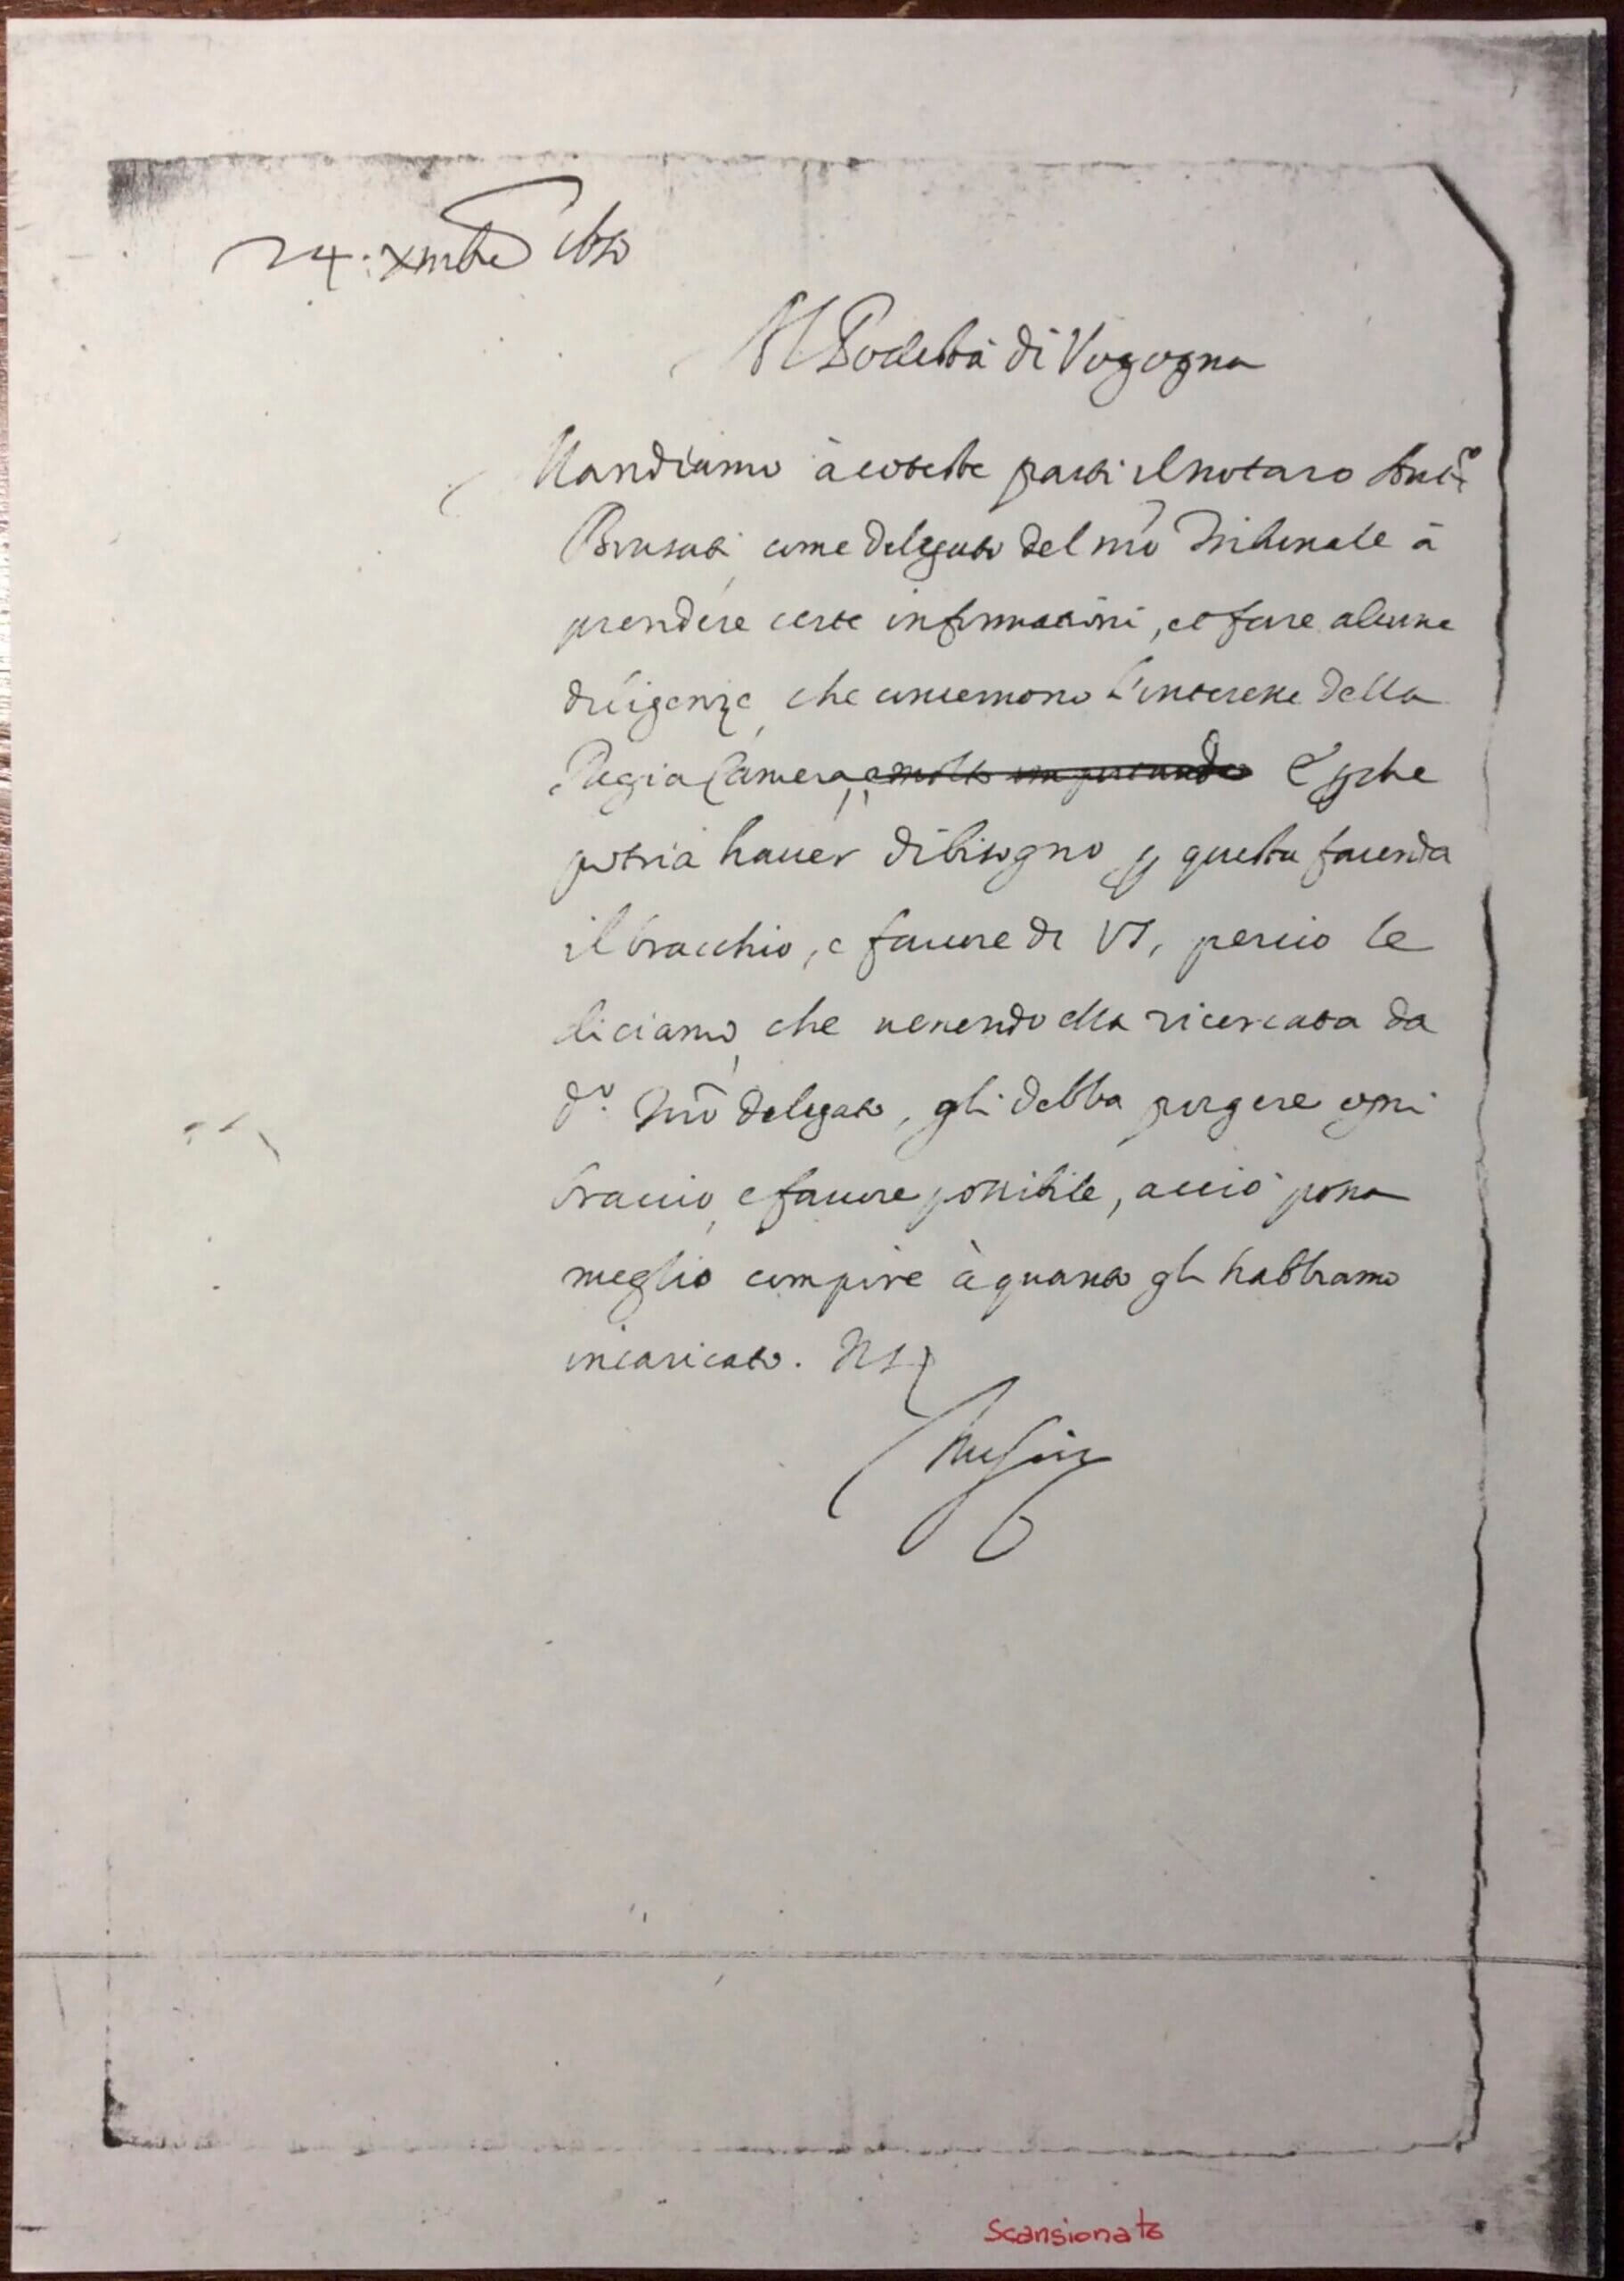 24: Xmbre
Al Podestà di Vogogna
Mandiamo à coteste parti il notaro
Brusati come delegato del nrõ Tribunale à
prendere certe informationi, et fare alcune
diligenze, che concernono l'interesse della
Regia Camera, e molto importando E perche
potria hauer di bisogno p questa facenda
il bracchio, e fauore di VS, perciò le
diciamo, che uenendo ella ricercata da
d.º nrõ delegato, gli debba porgere ogni
braccio, e fauore possibile, acciò possa
meglio compire à quanto gli habbiamo
incaricato. NS
Scansionato